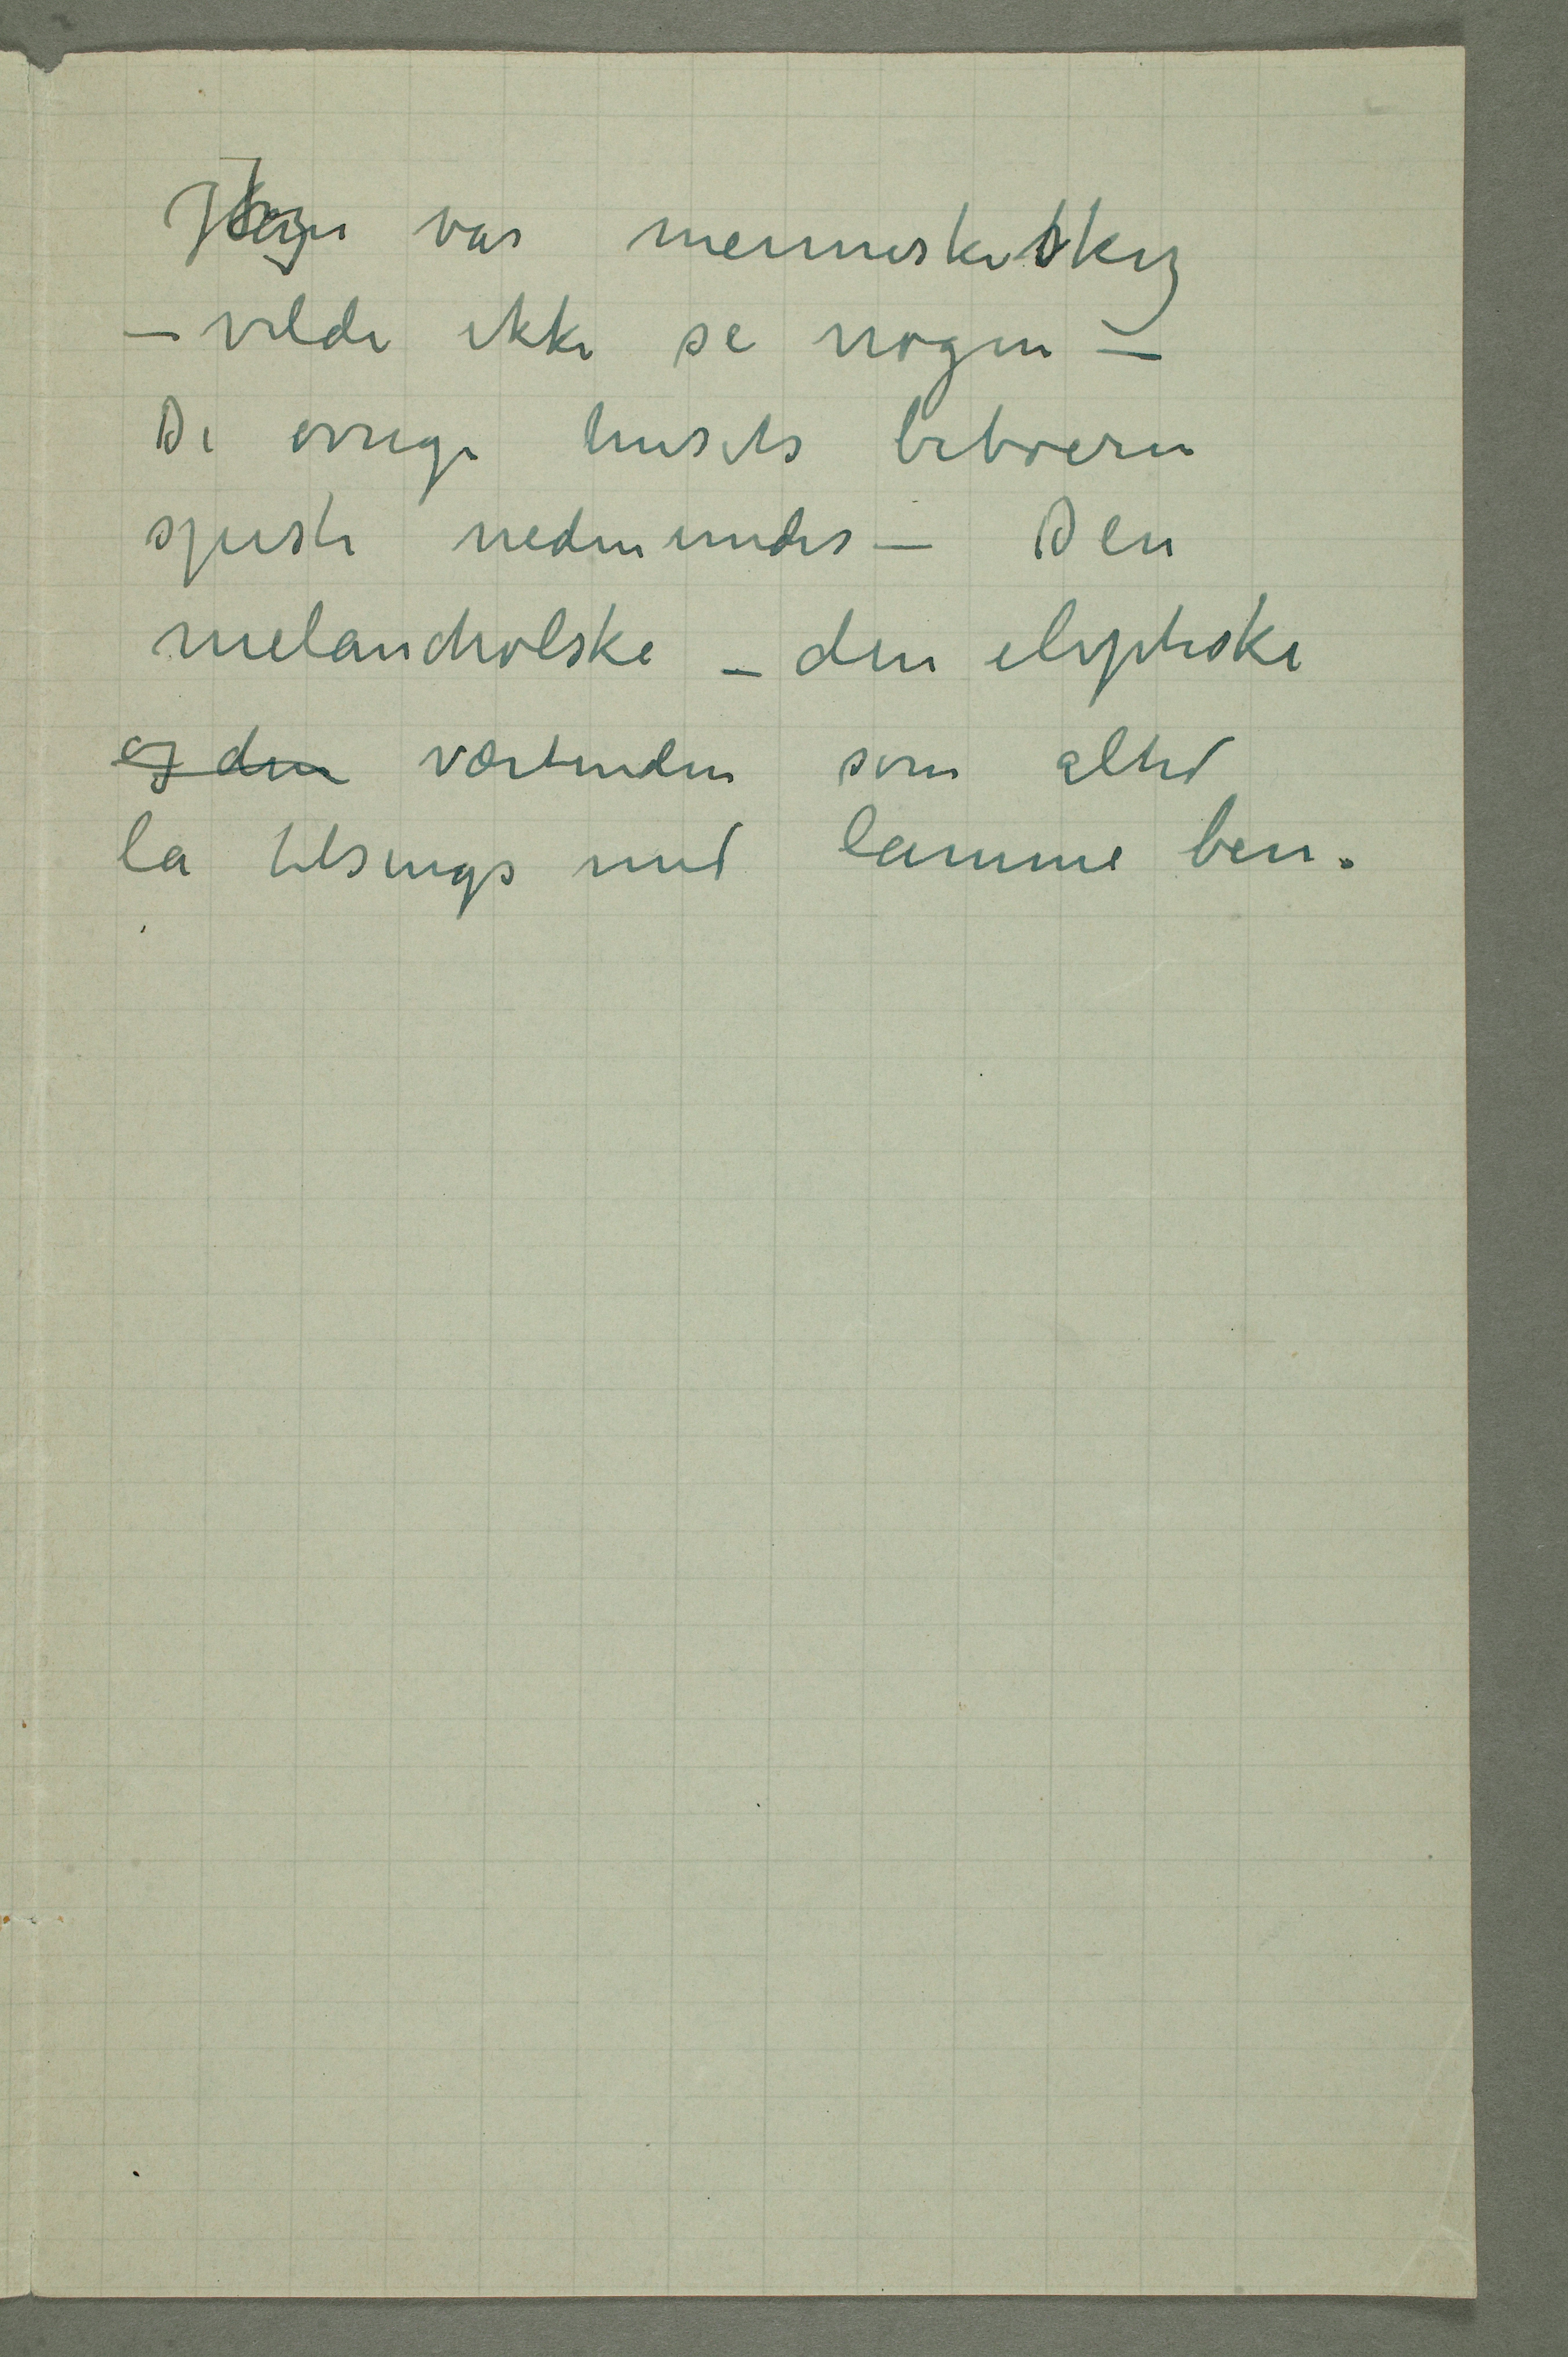 Jeg var menneskesky
– vilde ikke se nogen –
De øvrige husets beboere
spiste nedenunder – Den
melancholske – den elyptiske
og den værtinden som altid
la tilsengs med lamme ben.